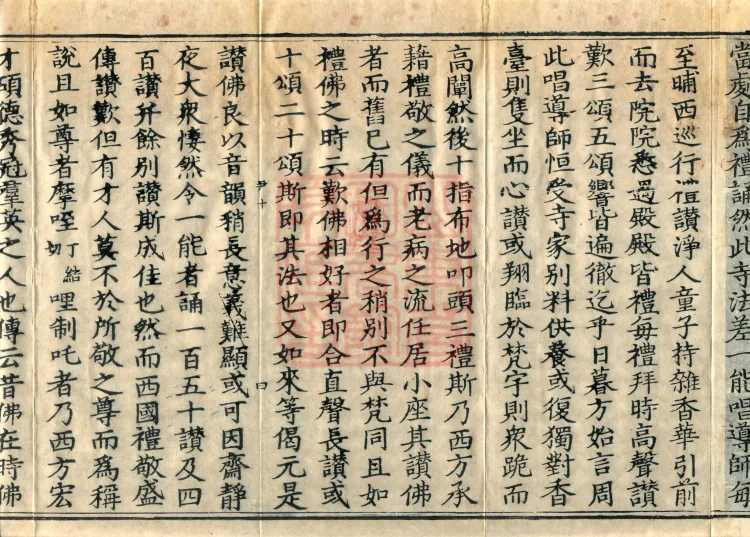 當處自爲禮誦然此寺法差一能唱導師每
至晡西巡行禮讃淨人童子持雜香華引前
而去院院悉過殿殿皆禮每禮拜時高聲讃
歎三頌五頌響皆遍徹迄乎日暮方始言周
此唱導師恒受寺家別料供養或復獨對香
臺則隻坐而心讃或翔臨於梵宇則衆跪而
高闡然後十指布地叩頭三禮斯乃西方承
藉禮敬之儀而老病之流任居小座其讃佛
者而舊已有但爲行之稍別不與梵同且如
禮佛之時云歎佛相好者即合直聲長讃或
十頌二十頌斯即其法也又如來等偈元是
尹十 四
讃佛良以音韻稍長意義難顯或可因齋靜
夜大衆悽然令一能者誦一百五十讃及四
百讃幷餘別讃斯成佳也然而西國禮敬盛
傳讃歎但有才人莫不於所敬之尊而爲稱
說且如尊者摩咥丁結切哩制吒者乃西方宏
才碩德秀冠羣英之人也傳云昔佛在時佛